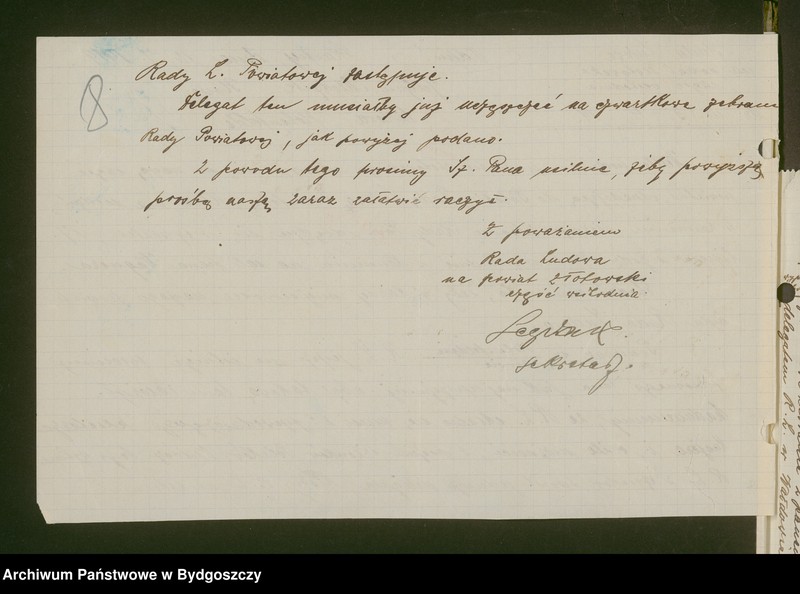 8
Rady L. Powiatowej zastępuje.
Delegat ten musiałby już uczęszczać na czwartkowe zebranie
Rady Powiatowej, jak powyżej podano.
Z powodu tego prosimy Sz. Pana usilnie, żeby powyższą
prośbę naszą zaraz załatwić raczył.
Z poważaniem
Rada Ludowa
na powiat złotowski
część wschodnia.
sekretarz.
delegatem R. L. w
Archiwum Państwowe w Bydgoszczy